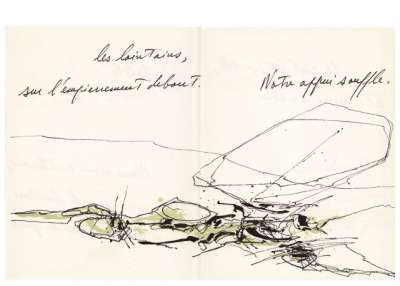 les lointains,
sur l'empierrement debout.
Notre appui souffle.